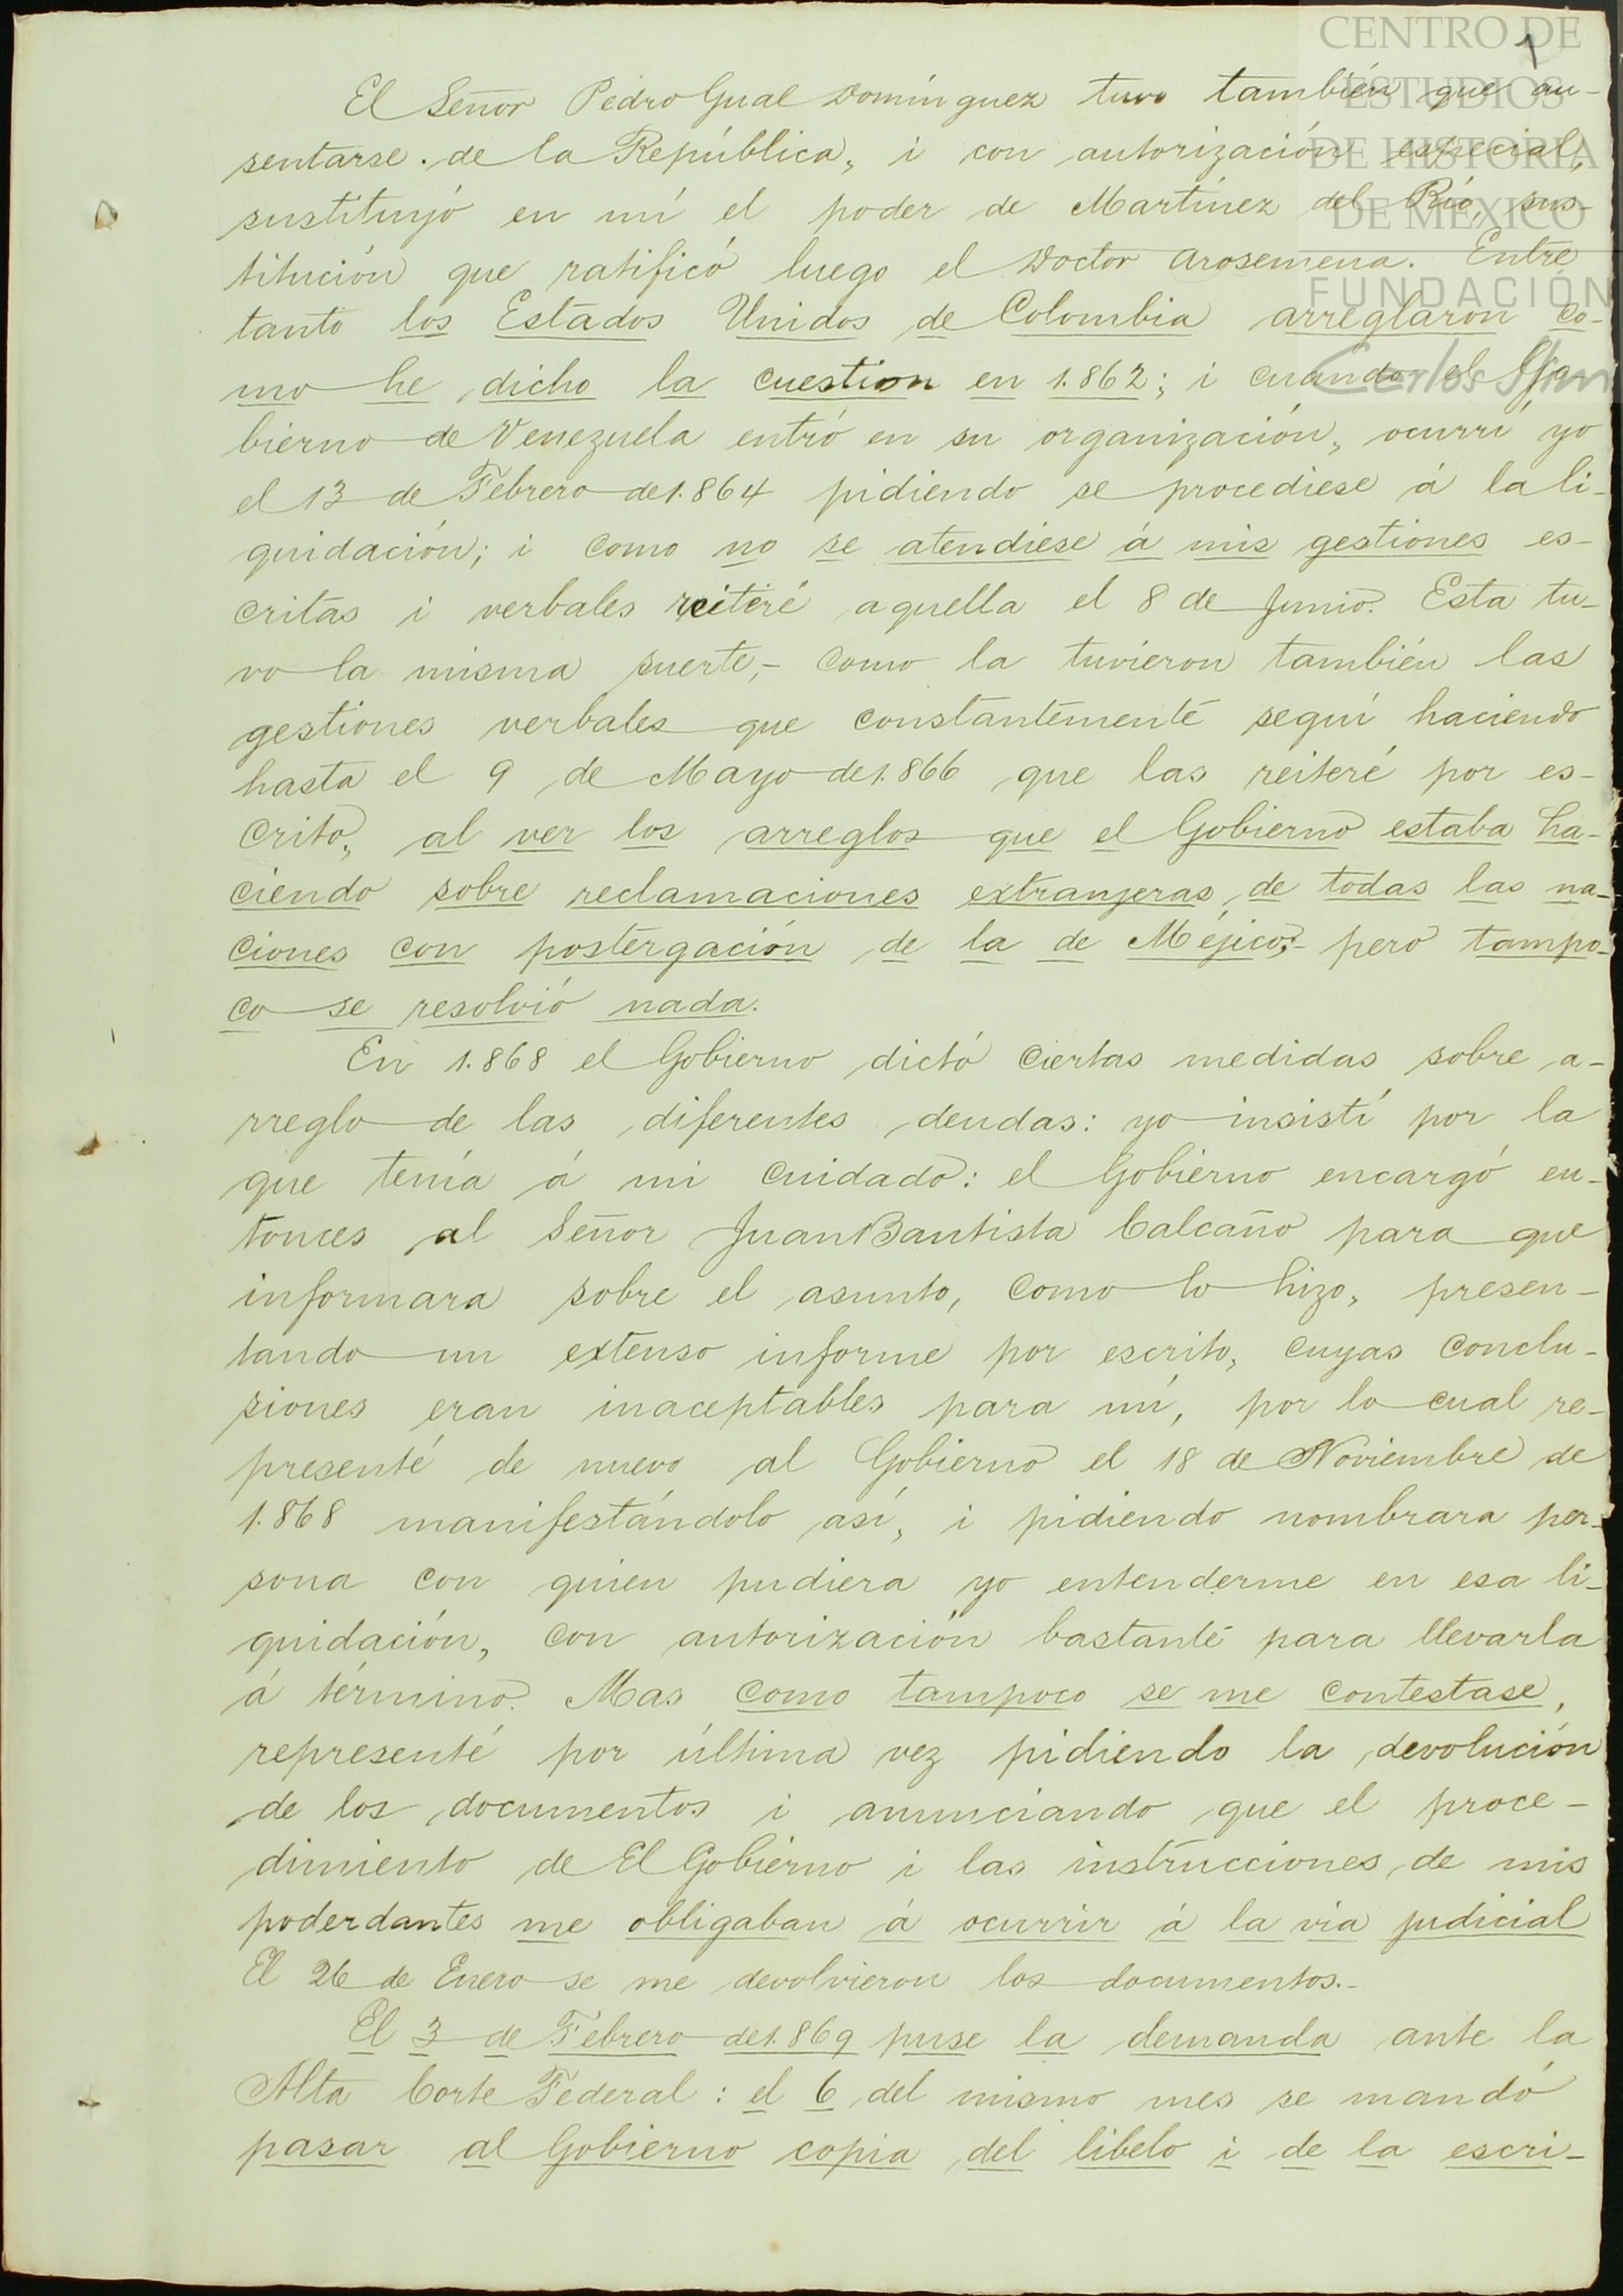 CENTRO DE
ESTUDIOS
DE HISTORIA
DE MÉXICO
FUNDACIÓN
Carlos Slim
1
El Señor Pedro Gual Domínguez tuvo también que au-
sentarse. de la República, i con autorización especial,
sustituyó en mí el poder de Martínez del Río, sus-
titución que ratificó luego el Doctor Arosemena. Entre
tanto los Estados Unidos de Colombia arreglaron co-
mo he dicho la cuestion en 1.862; i cuando el Go-
bierno de Venezuela entró en su organización, ocurrí yo
el 13 de Febrero de 1.864 pidiendo se procediese á la li-
quidación; i como no se atendiese á mis gestiones es-
critas i verbales reiteré aquella el 8 de Junio. Esta tu-
vo la misma suerte,- como la tuvieron también las
gestiones verbales que constantemente seguí haciendo
hasta el 9 de Mayo de 1.866 que las reiteré por es-
crito, al ver los arreglos que el Gobierno estaba ha-
ciendo sobre reclamaciones extranjeras de todas las na-
ciones con postergación de la de Méjico;- pero tampo-
co se resolvió nada.
En 1.868 el Gobierno dictó ciertas medidas sobre a-
rreglo de las diferentes deudas: yo insistí por la
que tenía á mi cuidado: el Gobierno encargó en-
tonces al Señor Juan Bautista Calcaño para que
informara sobre el asunto, como lo hizo, presen-
tando un extenso informe por escrito, cuyas conclu-
siones eran inaceptables para mí, por lo cual re-
presenté de nuevo al Gobierno el 18 de Noviembre de
1.868 manifestándolo así, i pidiendo nombrara per-
sona con quien pudiera yo entenderme en esa li-
quidación, con autorización bastante para llevarla
á término. Mas como tampoco se me contestase,
representé por última vez pidiendo la devolución
de los documentos i anunciando que el proce-
dimiento de El Gobierno i las instrucciones de mis
poderdantes me obligaban á ocurrir á la via judicial
El 26 de Enero se me devolvieron los documentos.-
El 3 de Febrero de 1.869 puse la demanda ante la
Alta Corte Federal: el 6 del mismo mes se mandó
pasar al Gobierno copia del libelo i de la escri-